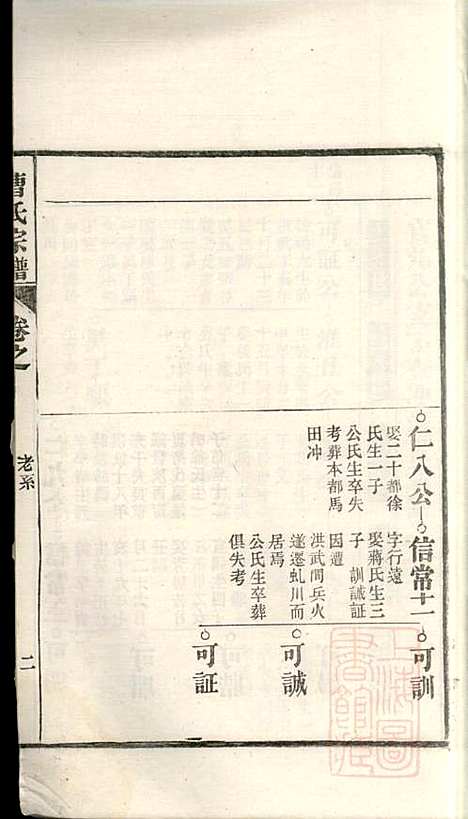 仁八公
娶二十都徐
氏生一子
公氏生卒失
考葬本都馬
田冲
信常十一
字行遠
娶蔣氏生三
子訓誠証
因遭
洪武間兵火
遂遷虬川而
居焉
公氏生卒葬
俱失考
可訓
可誠
可証
曹氏宗譜
卷之一
老系
二
上海圖書館藏